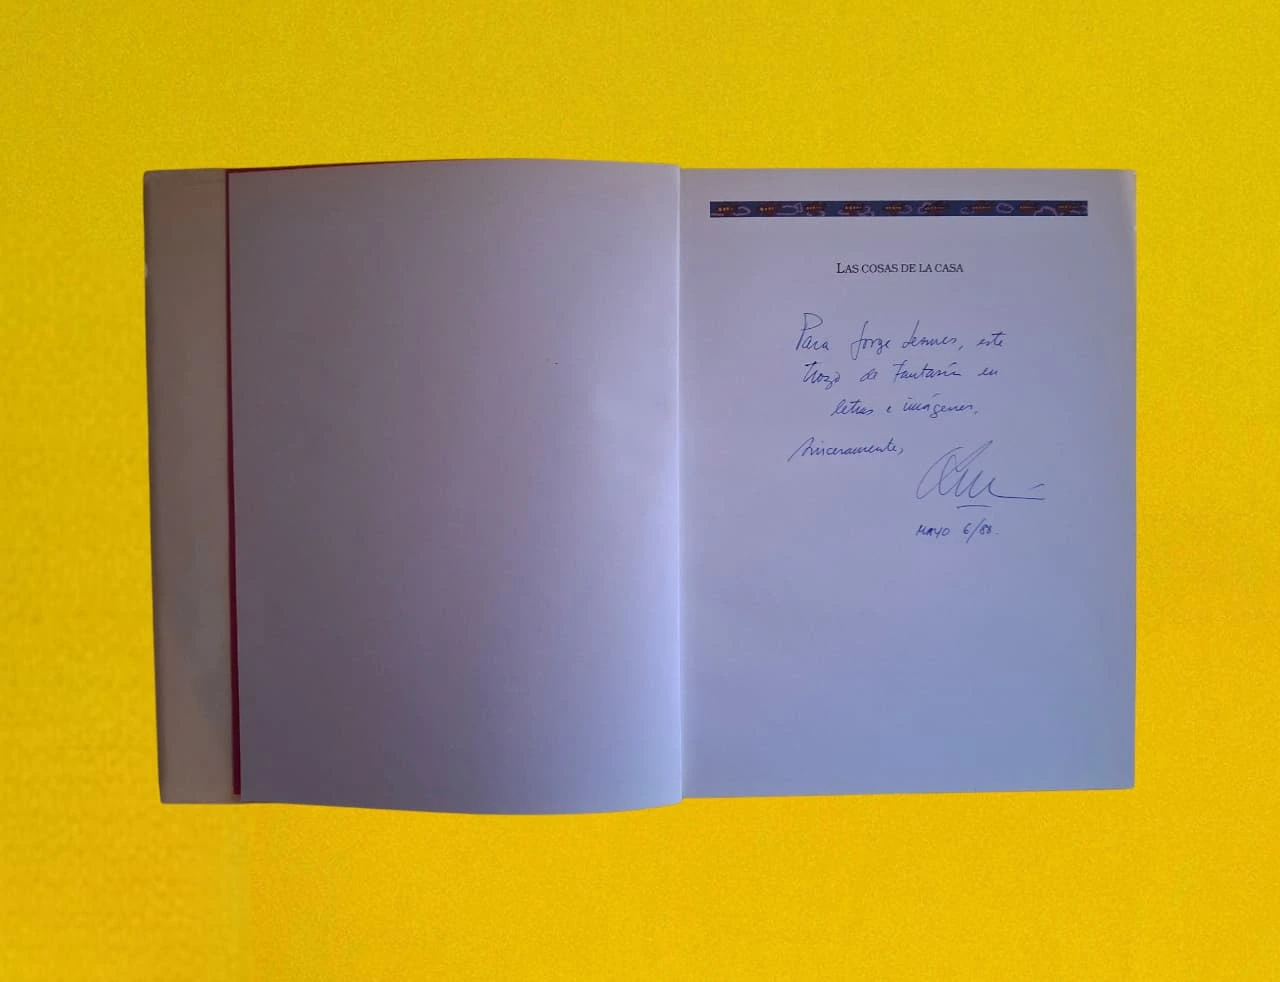 LAS COSAS DE LA CASA
Para Jorge Lesmes, este
trozo de fantasía en
letras e imágenes.
Sinceramente,
MAYO 6/88.